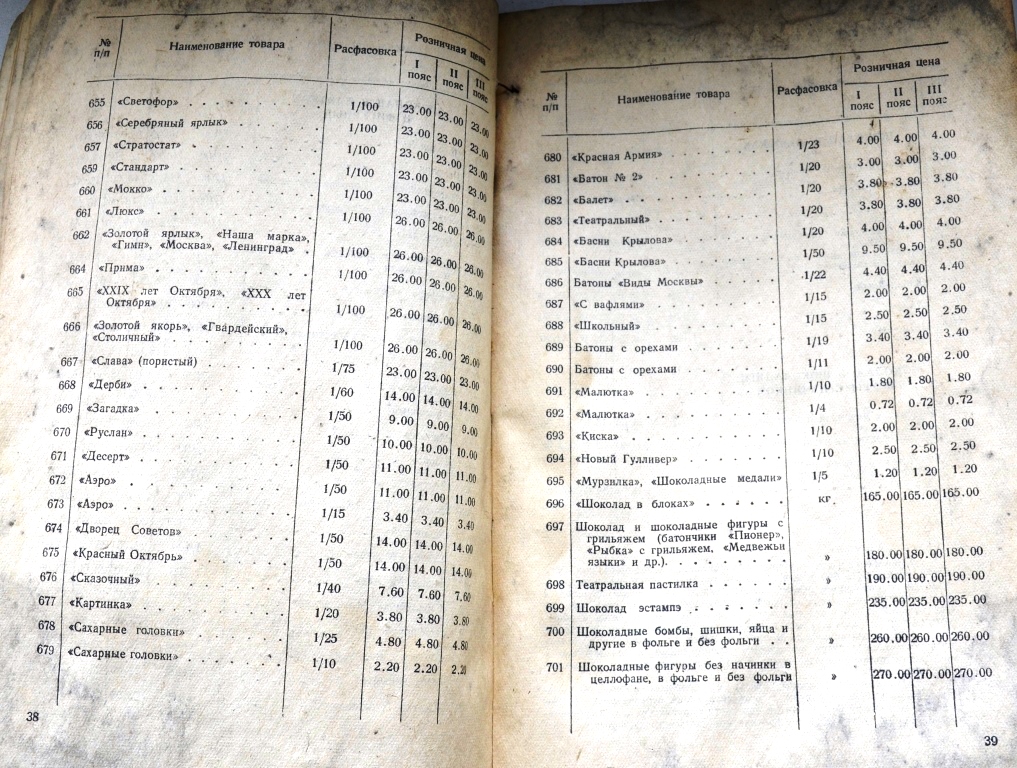 № п/п Наименование товара Расфасовка Розничная цена
I пояс II пояс III пояс
655 «Светофор» . . . . . . . 1/100 23.00 23.00 23.00
656 «Серебряный ярлык» . . . . . 1/100 23.00 23.00 23.00
657 «Стратостат» . . . . . . . 1/100 23.00 23.00 23.00
659 «Стандарт» . . . . . . . 1/100 23.00 23.00 23.00
660 «Мокко» . . . . . . . . 1/100 23.00 23.00 23.00
661 «Люкс» . . . . . . . . 1/100 26.00 26.00 26.00
662 «Золотой ярлык», «Наша марка»,
«Гимн», «Москва», «Ленинград» . 1/100 26.00 26.00 26.00
664 «Прима» . . . . . . . . 1/100 26.00 26.00 26.00
665 «XXIX лет Октября», «XXX лет
Октября» . . . . . . . 1/100 26.00 26.00 26.00
666 «Золотой якорь», «Гвардейский»,
«Столичный» . . . . . . 1/100 26.00 26.00 26.00
667 «Слава» (пористый) . . . . . 1/75 23.00 23.00 23.00
668 «Дерби» . . . . . . . . 1/60 14.00 14.00 14.00
669 «Загадка» . . . . . . . . 1/50 9.00 9.00 9.00
670 «Руслан» . . . . . . . . 1/50 10.00 10.00 10.00
671 «Десерт» . . . . . . . . 1/50 11.00 11.00 11.00
672 «Аэро» . . . . . . . . . 1/50 11.00 11.00 11.00
673 «Аэро» . . . . . . . . . 1/15 3.40 3.40 3.40
674 «Дворец Советов» . . . . . . 1/50 14.00 14.00 14.00
675 «Красный Октябрь» . . . . . . 1/50 14.00 14.00 14.00
676 «Сказочный» . . . . . . . 1/40 7.60 7.60 7.60
677 «Картинка» . . . . . . . . 1/20 3.80 3.80 3.80
678 «Сахарные головки» . . . . . 1/25 4.80 4.80 4.80
679 «Сахарные головки» . . . . . . 1/10 2.20 2.20 2.20
38
№ п/п Наименование товара Расфасовка Розничная цена
I пояс II пояс III пояс
680 «Красная Армия» . . . . . . 1/23 4.00 4.00 4.00
681 «Батон № 2» . . . . . . . 1/20 3.00 3.00 3.00
682 «Балет» . . . . . . . . . 1/20 3.80 3.80 3.80
683 «Театральный» . . . . . . . 1/20 3.80 3.80 3.80
684 «Басни Крылова» . . . . . . 1/20 4.00 4.00 4.00
685 «Басни Крылова» . . . . . . 1/50 9.50 9.50 9.50
686 Батоны «Виды Москвы» . . . . 1/22 4.40 4.40 4.40
687 «С вафлями» . . . . . . . 1/15 2.00 2.00 2.00
688 «Школьный» . . . . . . . . 1/15 2.50 2.50 2.50
689 Батоны с орехами . . . . . . 1/19 3.40 3.40 3.40
690 Батоны с орехами . . . . . . 1/11 2.00 2.00 2.00
691 «Малютка» . . . . . . . . 1/10 1.80 1.80 1.80
692 «Малютка» . . . . . . . . 1/4 0.72 0.72 0.72
693 «Киска» . . . . . . . . . 1/10 2.00 2.00 2.00
694 «Новый Гулливер» . . . . . . 1/10 2.50 2.50 2.50
695 «Мурзилка», «Шоколадные медали» 1/5 1.20 1.20 1.20
696 «Шоколад в блоках» . . . . . . кг 165.00 165.00 165.00
697 Шоколад и шоколадные фигуры с
грильяжем (батончики «Пионер»,
«Рыбка» с грильяжем, «Медвежьи
языки» и др.). . . . . . . . » 180.00 180.00 180.00
698 Театральная пастилка . . . . . » 190.00 190.00 190.00
699 Шоколад эстампэ . . . . . . . » 235.00 235.00 235.00
700 Шоколадные бомбы, шишки, яйца и
другие в фольге и без фольги . . » 260.00 260.00 260.00
701 Шоколадные фигуры без начинки в
целлофане, в фольге и без фольги » 270.00 270.00 270.00
39